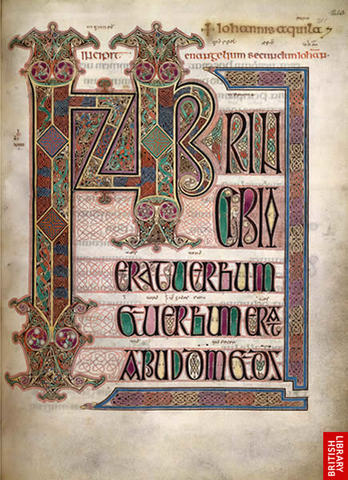 + Iohannis aquila
incipit euangelium secundum iohan
INPRIN
CIPIO
ERAT UERBUM
ET UERBUM ERAT
APUD DM ET DS
BRITISH
LIBRARY